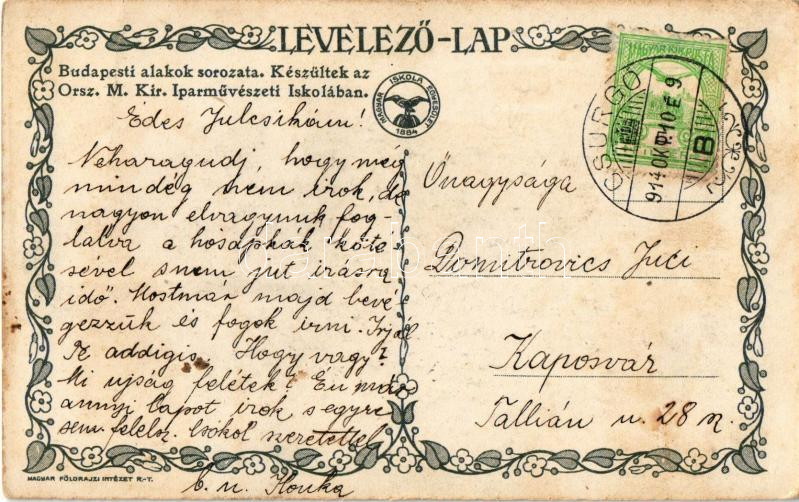 LEVELEZŐ-LAP
Budapesti alakok sorozata. Készültek az
Orsz. M. Kir. Iparművészeti Iskolában.
MAGYAR ISKOLA EGYESÜLET
1884
MAGYAR KIR. POSTA
CSURGÓ
914 OKT 10 E 9
B
Édes Julcsikám!
Neharagudj, hogy még
mindég nem irok, de
nagyon elvagyunk fog-
lalva a hósapkák köté-
sével s nem jut irásra
idő. Mostmár majd beve-
gezzük és fogok irni. Irjál
Te addigis. Hogy vagy?
Mi ujság felétek? Én már
annyi lapot irok s egyre
sem felelsz. Csókol szeretettel
b. n. Ilonka
Önagysága
Domitrovics Juci
Kaposvár
Tallián u. 28 n.
MAGYAR FÖLDRAJZI INTÉZET R.-T.